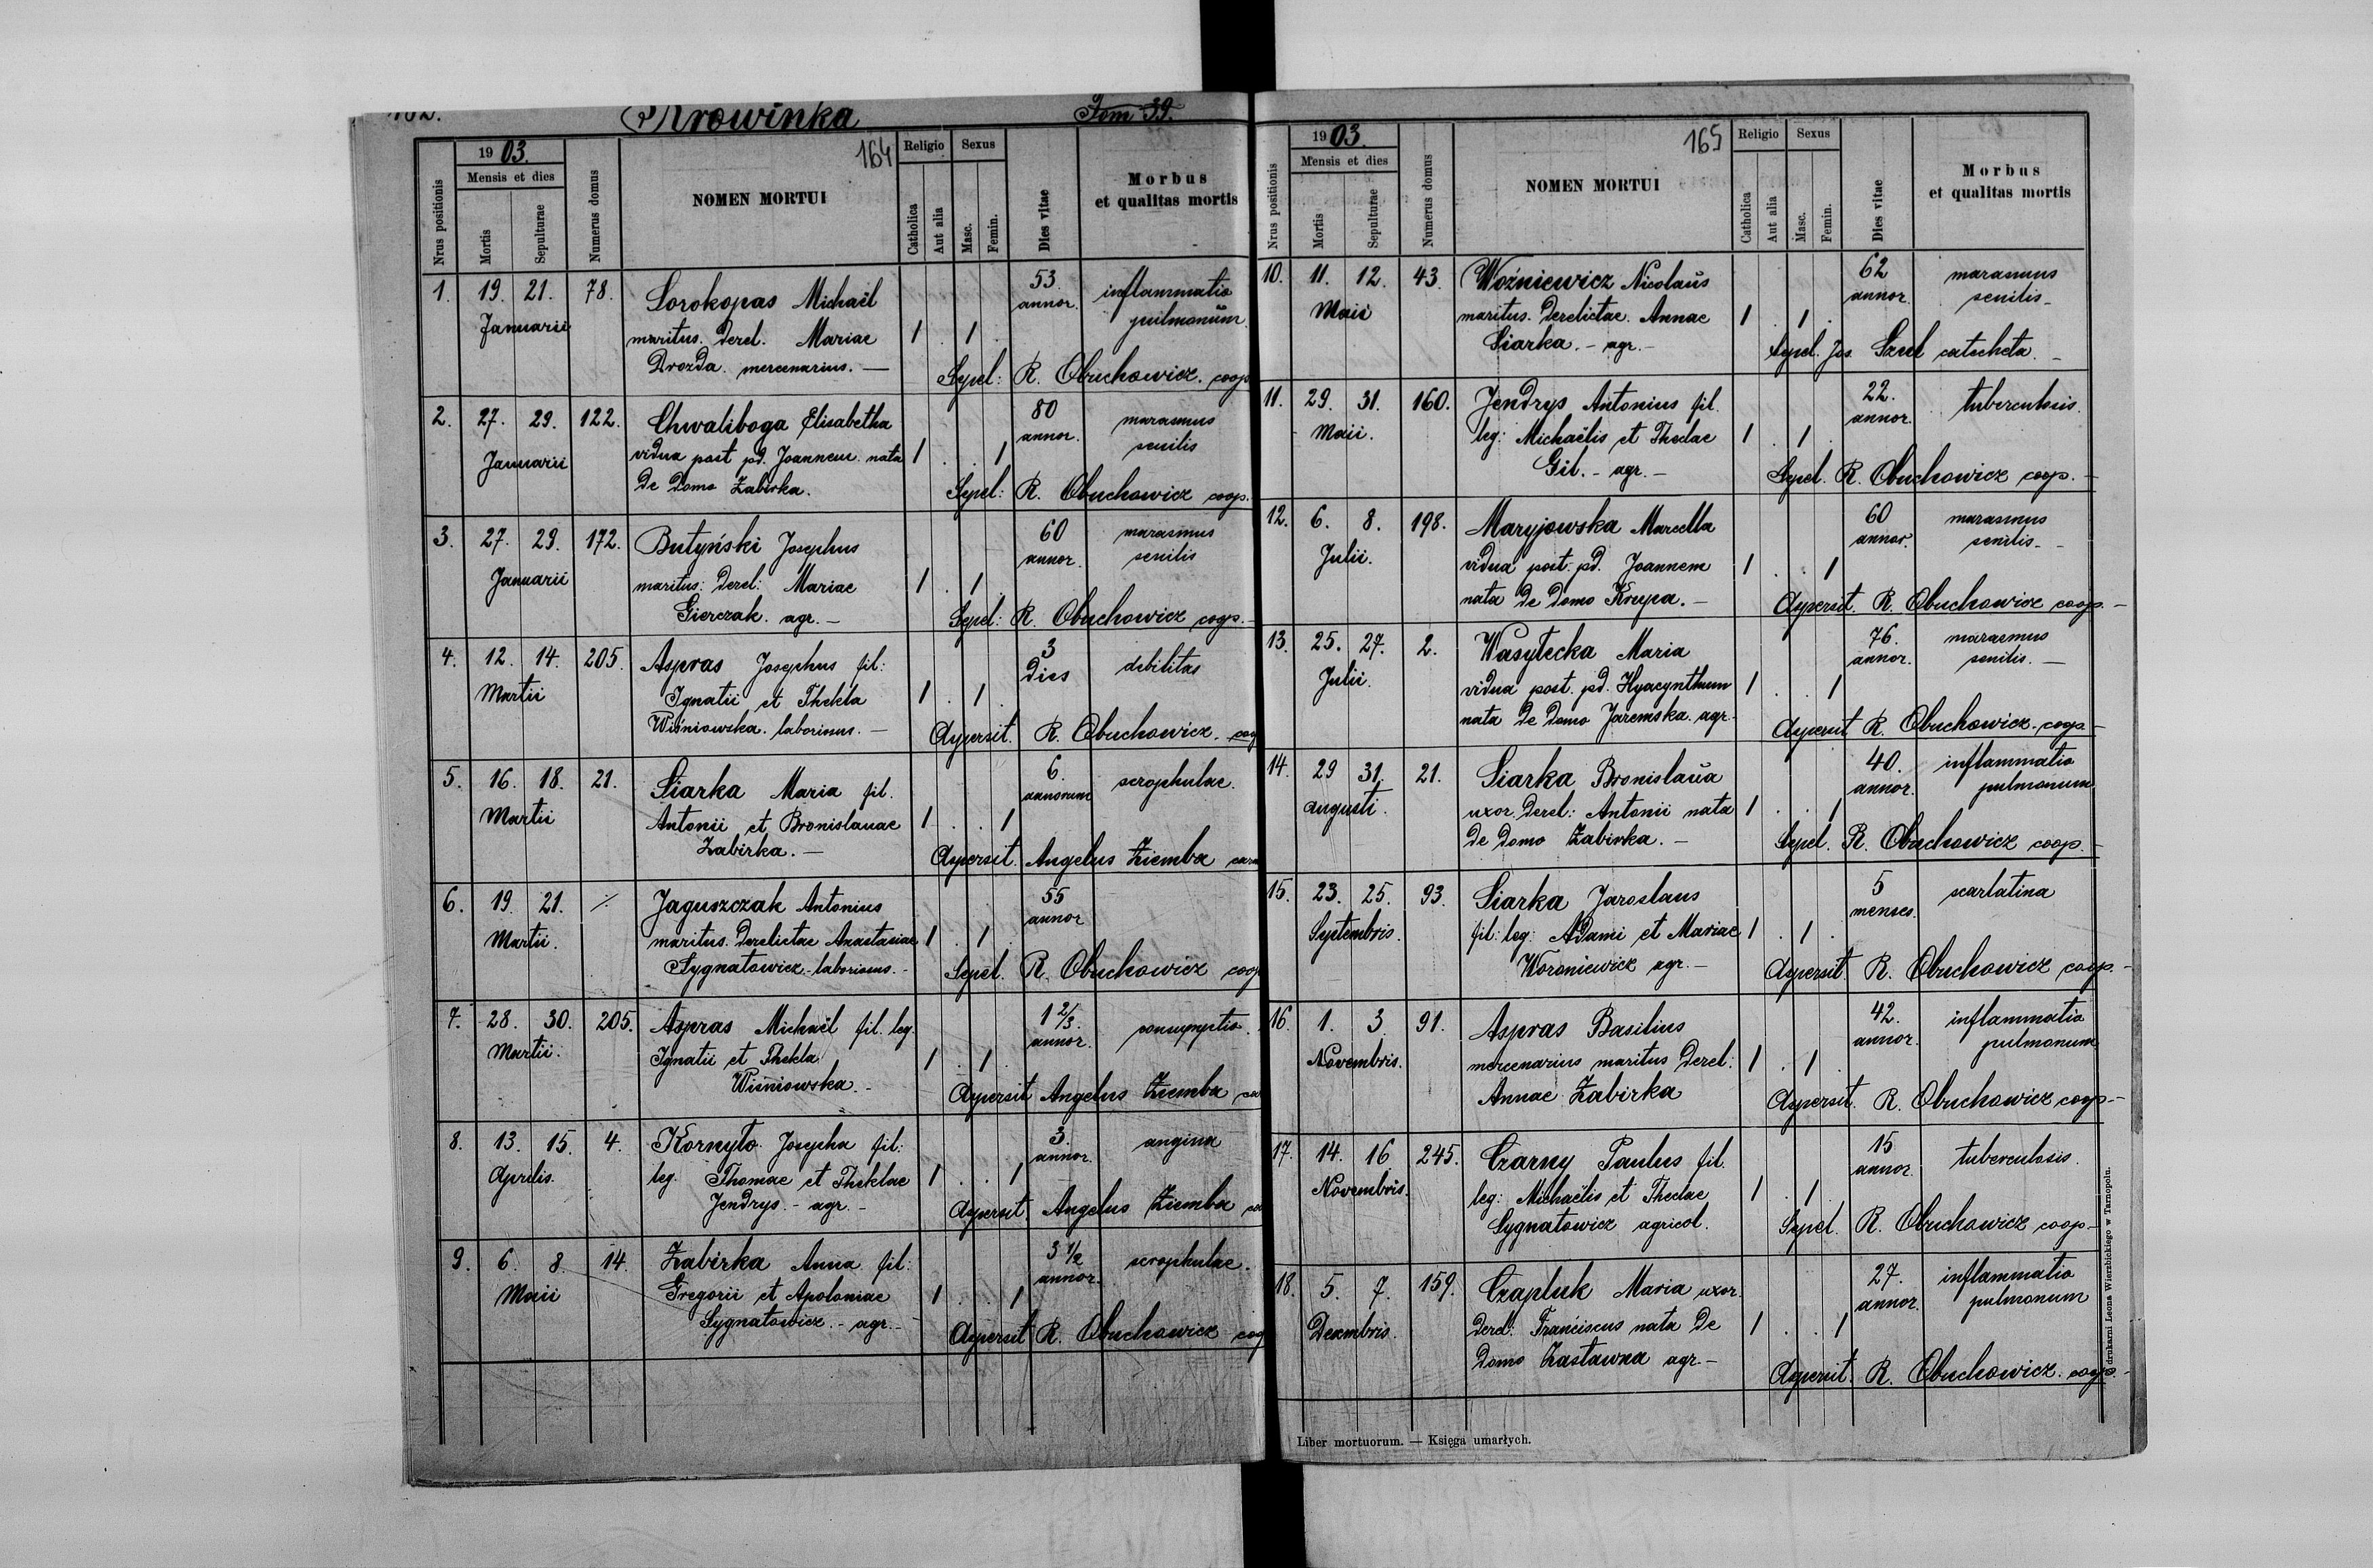 Krowinka Tom 39.
164
Nrus positionis
1903.
Mensis et dies
Mortis
Sepulturae
Numerus domus
NOMEN MORTUI
Religio
Catholica
Aut alia
Sexus
Masc.
Femin.
Dies vitae
Morbus
et qualitas mortis
1. 19. 21. 78. Sorokopas Michaël 53. inflammatio
Januarii annor. pulmonum
maritus. derel. Mariae 1 . 1 .
Drozda. mercenarius. —
Sepel: R. Obuchowicz. coop
2. 27. 29. 122. Chwaliboga Elisabetha 80 marasmus
Januarii annor. senilis
vidua post pd. Joannem. nata 1 . . 1
de domo Zabirka.
Sepel: R. Obuchowicz coop.
3. 27. 29. 172. Butyński Josephus 60 marasmus
Januarii annor. senilis
maritus: derel: Mariae 1 . 1 .
Gierczak. agr. —
Sepel: R. Obuchowicz coop. —
4. 12. 14. 205. Aspras Josephus fil: 3 debilitas
Martii dies
Ignatii et Thekla 1 . 1 .
Wiśniowska. laborinus. —
Aspersit. R. Obuchowicz. coop
5. 16. 18. 21. Siarka Maria fil. 6. scrophulae.
Martii annorum
Antonii et Bronislauae 1 . . 1
Zabirka. —
Aspersit. Angelus Ziemba
6. 19. 21. ∕. Jaguszczak Antonius 55
Martii. annor
maritus. derelictae Anastasiae 1 . 1 .
Sygnatowicz - laboriosus. -
Sepel. R. Obuchowicz coop
7. 28. 30. 205. Aspras Michaël fil. leg. 1 2/3. consumptio.
Martii. annor.
Ignatii et Thekla 1 . 1 .
Wiśniowska. -
Aspersit Angelus Ziemba
8. 13. 15. 4. Kornyto Josepha fil: 3. angina
Aprilis. annor.
leg. Thomae et Theklae 1 . . 1
Jendrys. - agr. -
Aspersit. Angelus Ziemba
9. 6. 8. 14. Zabirka Anna fil: 3 1/2 scrophulae.
Maii annor.
Gregorii et Apoloniae 1 . . 1
Sygnatowicz. - agr. -
Aspersit R. Obuchowicz coop
165
Nrus positionis
1903.
Mensis et dies
Mortis
Sepulturae
Numerus domus
NOMEN MORTUI
Religio
Catholica
Aut alia
Sexus
Masc.
Femin.
Dies vitae
Morbus
et qualitas mortis
10. 11. 12. 43. Woźniewicz Nicolaŭs 62 marasmus
Maii annor. senilis -
maritus. derelictae. Annae 1 . 1 .
Siarka. - agr. -
Sepel. Jos. Szul catecheta. -
11. 29. 31. 160. Jendrys Antonius fil. 22. tuberculosis.
Maii. annor.
leg: Michaëlis et Theclae 1 . 1 .
Gil. - agr. -
Sepel. R. Obuchowicz coop. -
12. 6. 8. 198. Maryjowska Marcella 60 marasmus
Julii. annor. senilis. -
vidua post. pd. Joannem 1 . . 1
nata de domo Krupa. —
Aspersit. R. Obuchowicz coop. —
13. 25. 27. 2. Wasylecka Maria 76. marasmus
Julii. annor. senilis. —
vidua post. pd. Hyacynthum 1 . . 1
nata de domo Jaremska. agr.
Aspersit R. Obuchowicz. coop. -
14. 29 31. 21. Siarka Bronislaŭa 40. inflammatio
augusti. annor. pulmonum
uxor. derel: Antonii nata 1 . . 1
de domo Zabirka. —
Sepel. R. Obuchowicz coop. -
15. 23. 25. 93. Siarka Jaroslaus 5 scarlatina
Septembris. menses.
fil: leg: Adami et Mariae 1 . 1 .
Woroniewicz agr. —
Aspersit. R. Obuchowicz coop. -
16. 1. 3 91. Aspras Basilius 42. inflammatio
Novembris. annor. pulmonum
mercenarius maritus derel: 1 . 1 .
Annae Zabirka
Aspersit. R. Obuchowicz coop. -
17. 14. 16 245. Czarny Paulus fil. 15 tuberculosis.
Novembris. annor.
leg: Michaëlis et Theclae 1 . 1 .
Sygnatowicz agricol.
Sepel. R. Obuchowicz coop. -
18. 5. 7. 159. Czapluk Maria uxor. 27. inflammatio
Dezembris. annor. pulmonum
derel: Franciscus nata de 1 . . 1
domo Zastawna agr. —
Aspersit. R. Obuchowicz. coop. -
Liber mortuorum. — Księga umarłych.
drukarni Leona Wierzbickiego w Tarnopolu.